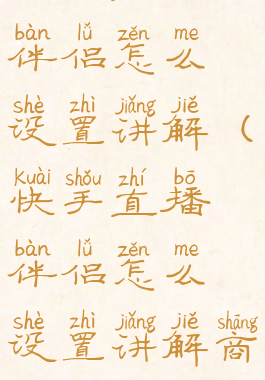 bàn lǚ zěn me
伴侣怎么
shè zhì jiǎng jiě
设置讲解（
kuài shǒu zhí bō
快手直播
bàn lǚ zěn me
伴侣怎么
shè zhì jiǎng jiě shāng
设置讲解商